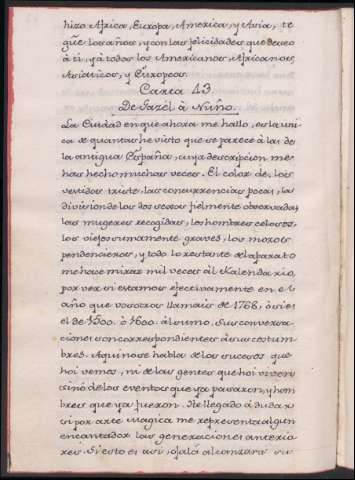 hizo Africa, Europa, America, y Asia, te
gũe los años, y con las felicidades que deseo
à ti, y à todos los Americanos, Africanos,
Asiaticos, y Europeos.
Carta 43.
De Gazèl à Nuño.
La Ciudad en que ahora me hallo, es la uni
ca de quantas he visto que se parece à la de
la antigua España, cuya descripcion me
has hecho muchas veces. El color de los
vestidos triste, las concurrencias pocas, la
division de los dos sexos fielmente observada,
las mugeres recogidas, los hombres celosos,
los viejos sumamente graves, los mozos
pendencieros, y todo lo restante del aparato
me hace mirar mil veces àl Kalendario,
por ver si estamos efectivamente en el
año que vosotros llamais de 1768, ò si es
el de 1500. ò 1600. àl sumo. Sus conversa-
ciones son correspondientes à sus costum-
bres. Aqui no se habla de los sucesos que
hoi vemos, ni de las gentes que hoi viven
sinò de los eventos que ya pasaron, y hom
bres que ya fueron. He llegado à dudar
si por arte magica me representa algun
encantador las generaciones anterio
res. Si esto es asi, ojalá alcanzara su